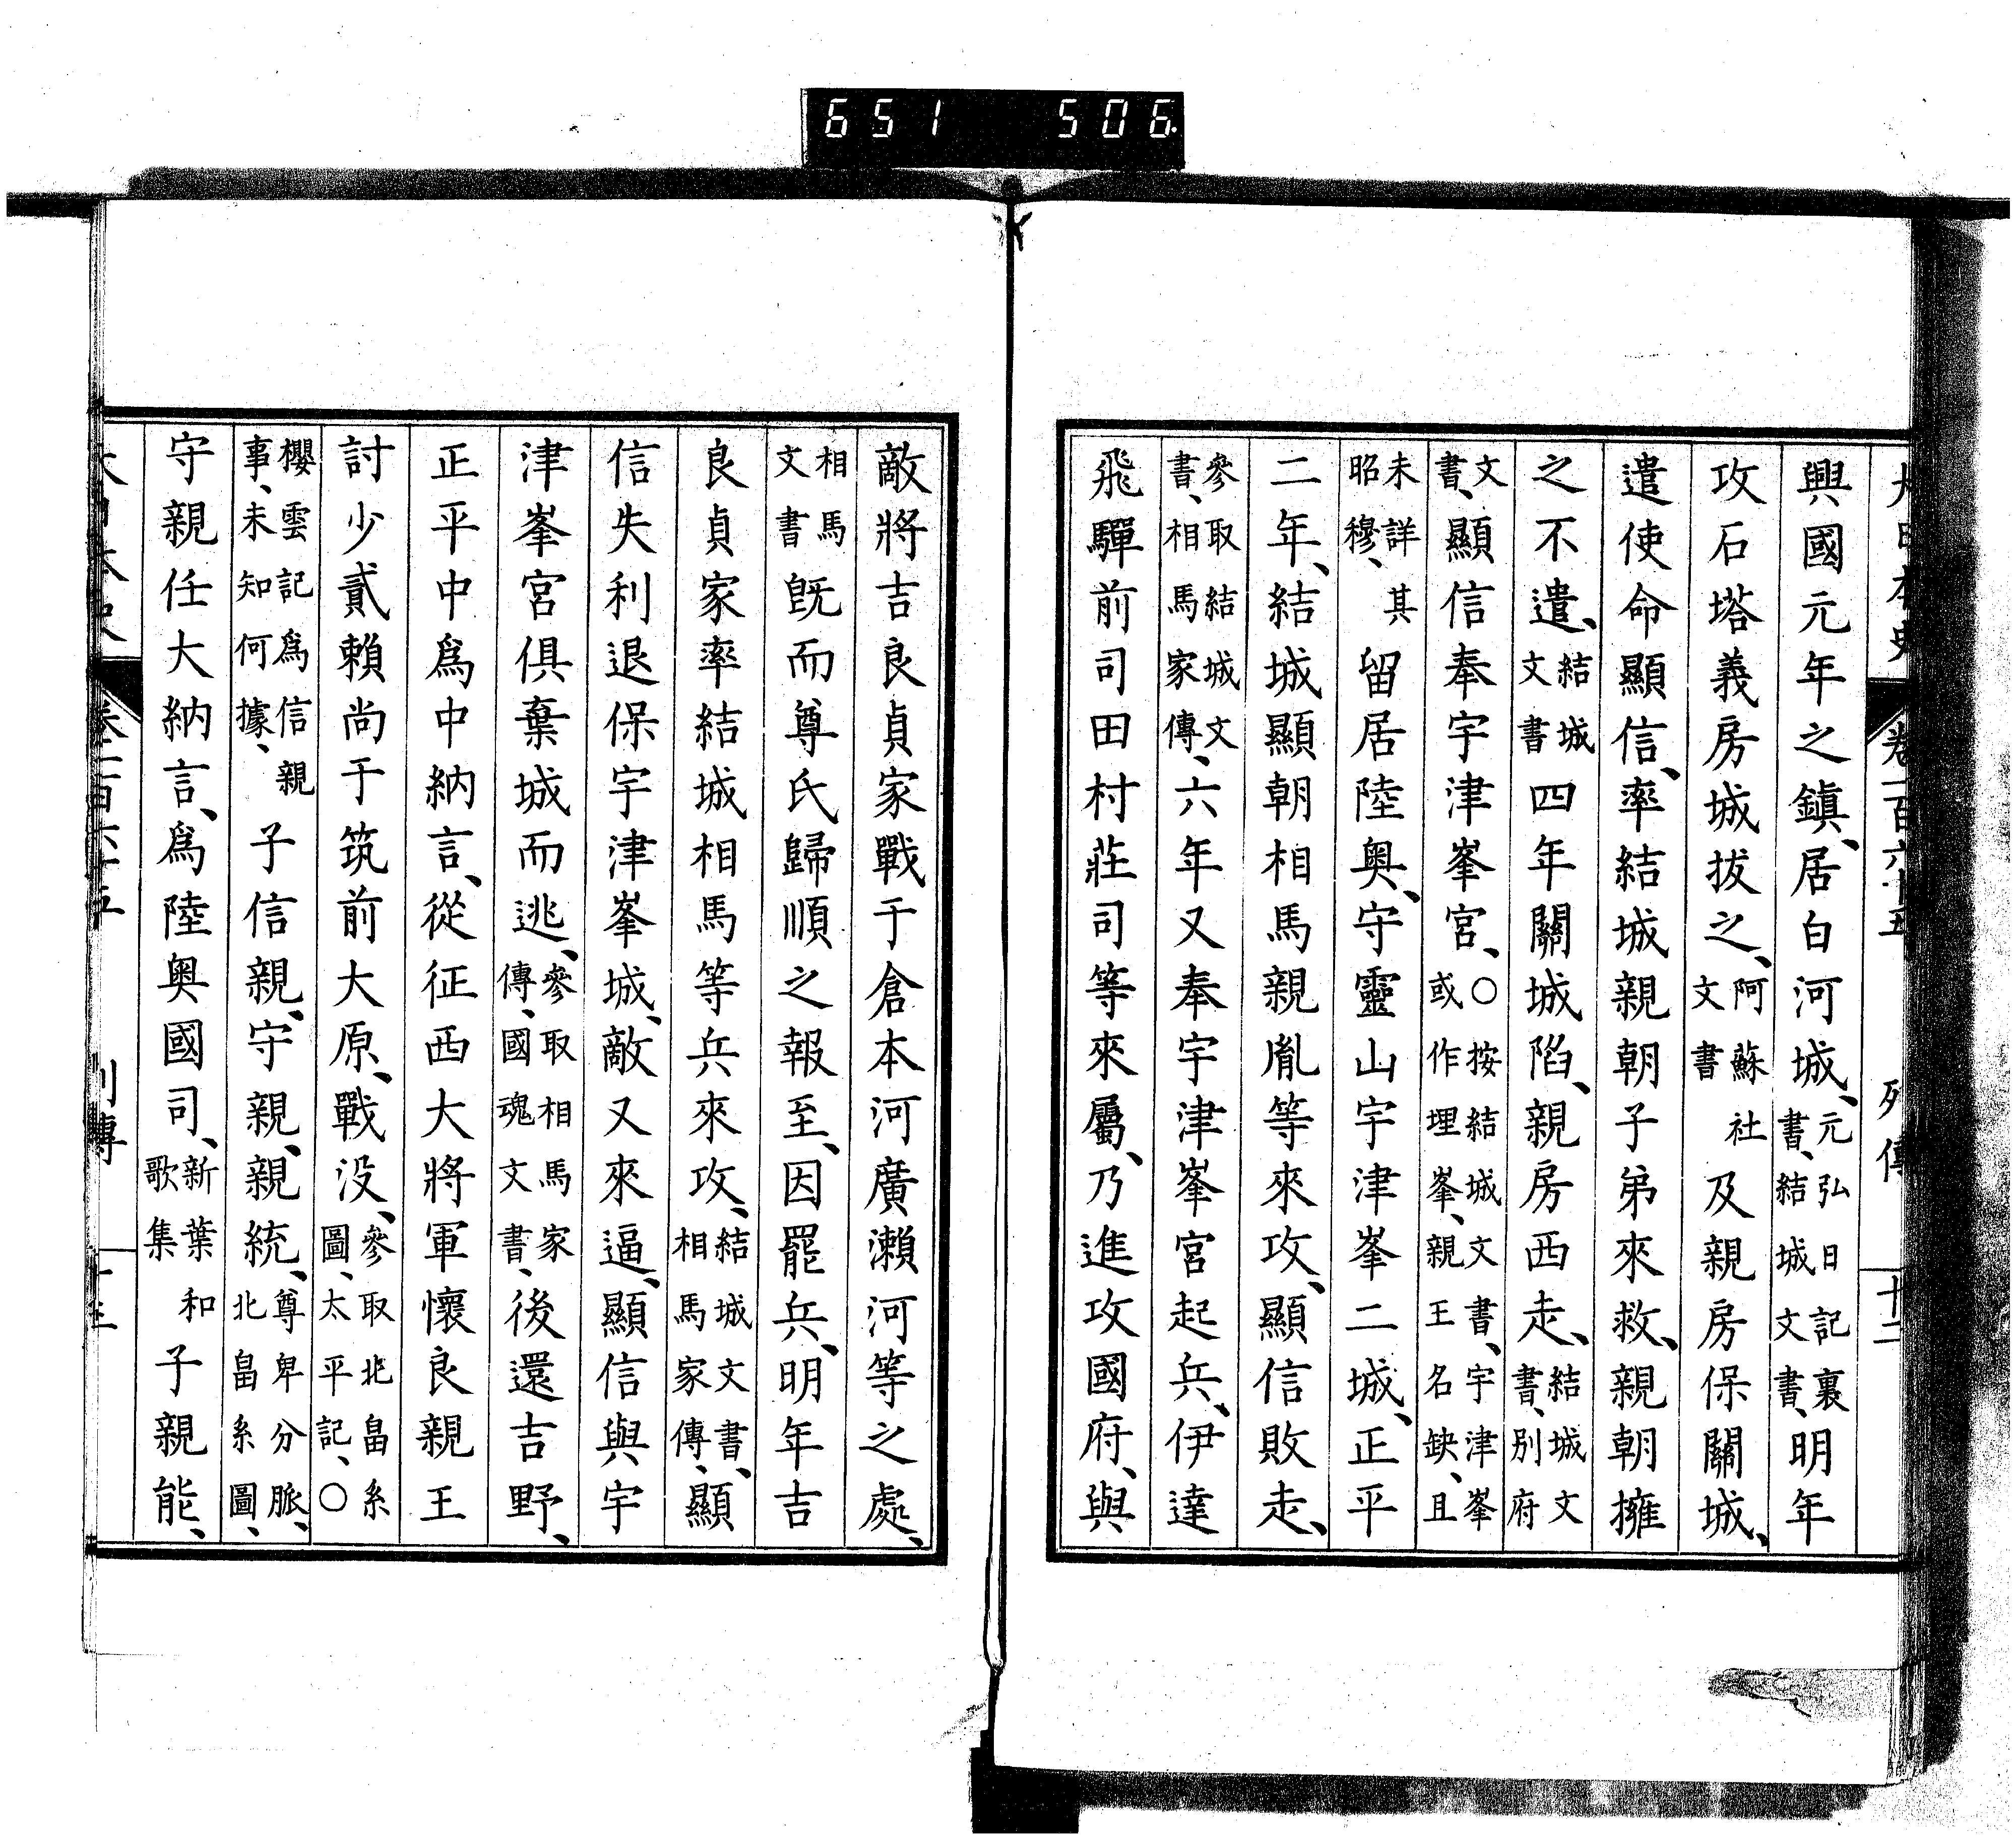 651 506
大日本史 卷一百六十五 列傳 十二
興國元年之鎮、居白河城、元弘日記裏書、結城文書、明年
攻石塔義房城拔之、阿蘇社文書及親房保關城、
遣使命顯信、率結城親朝子弟來救、親朝擁
之不遣、結城文書四年關城陷、親房西走、結城文書、別府
文書、顯信奉宇津峯宮、○按結城文書、宇津峯或作埋峯、親王名缺、且
未詳其昭穆、留居陸奧、守靈山宇津峯二城、正平
二年、結城顯朝相馬親胤等來攻、顯信敗走、
參取結城文書、相馬家傳、六年又奉宇津峯宮起兵、伊達
飛驒前司田村莊司等來屬、乃進攻國府、與
敵將吉良貞家戰于倉本河廣瀨河等之處、
相馬文書旣而尊氏歸順之報至、因罷兵、明年吉
良貞家率結城相馬等兵來攻、結城文書、相馬家傳、顯
信失利退保宇津峯城、敵又來逼、顯信與宇
津峯宮俱棄城而逃、參取相馬家傳、國魂文書、後還吉野、
正平中爲中納言、從征西大將軍懷良親王
討少貳賴尚于筑前大原、戰没、參取北畠系圖、太平記、○
櫻雲記爲信親事、未知何據、子信親、守親、親統、尊卑分脈、北畠系圖、
守親任大納言、爲陸奧國司、新葉和歌集子親能、
列傳